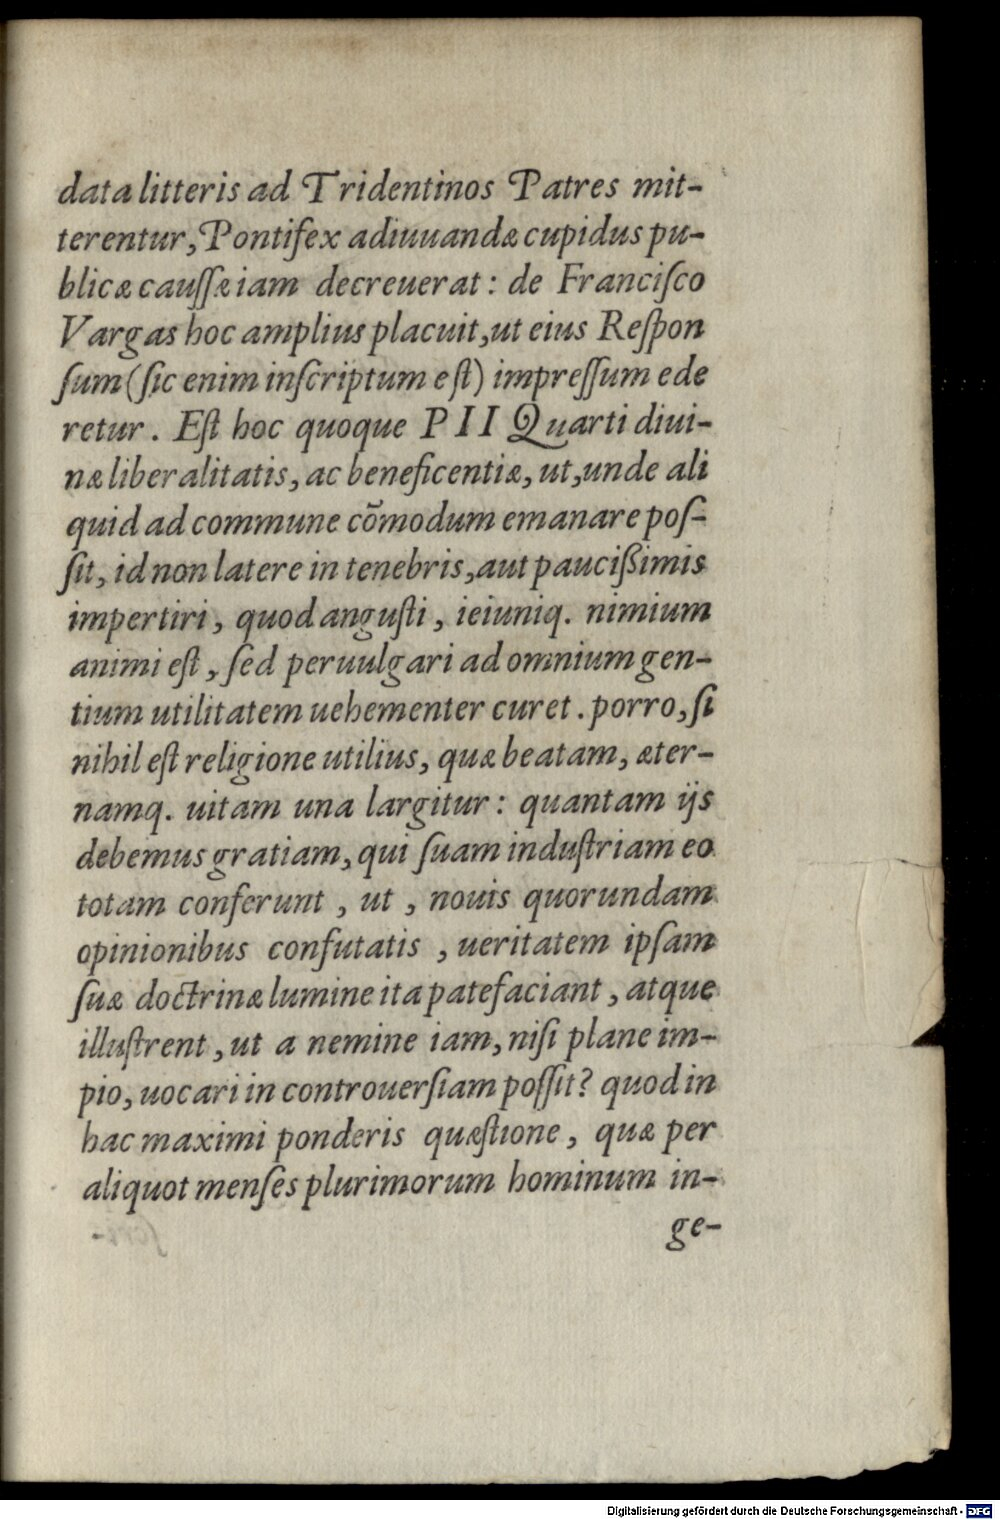 data litteris ad Tridentinos Patres mit-
terentur, Pontifex adiuuandæ cupidus pu-
blicæ caussæ iam decreuerat: de Francisco
Vargas hoc amplius placuit, ut eius Respon
sum (sic enim inscriptum est) impressum ede
retur. Est hoc quoque PII Quarti diui-
næ liberalitatis, ac beneficentiæ, ut, unde ali
quid ad commune cōmodum emanare pos-
sit, id non latere in tenebris, aut paucißimis
impertiri, quod angusti, ieiuniq. nimium
animi est, sed peruulgari ad omnium gen-
tium utilitatem uehementer curet. porro, si
nihil est religione utilius, quæ beatam, æter-
namq. uitam una largitur: quantam ijs
debemus gratiam, qui suam industriam eo
totam conferunt, ut, nouis quorundam
opinionibus confutatis, ueritatem ipsam
suæ doctrinæ lumine ita patefaciant, atque
illustrent, ut a nemine iam, nisi plane im-
pio, uocari in controuersiam possit? quod in
hac maximi ponderis quæstione, quæ per
aliquot menses plurimorum hominum in-
ge-
Digitalisierung gefördert durch die Deutsche Forschungsgemeinschaft - DFG